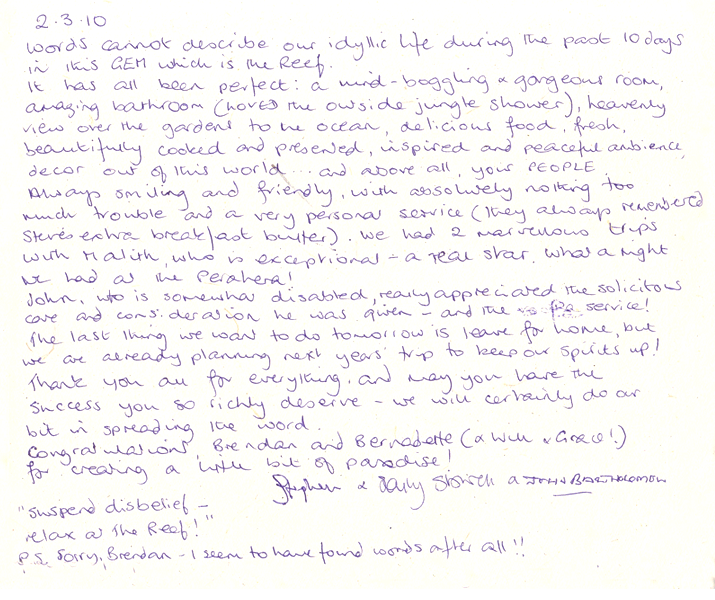 2.3.10
Words cannot describe our idyllic life during the past 10 days
in this GEM which is the Reef.
It has all been perfect: a mind-boggling & gorgeous room,
amazing bathroom (loved the outside jungle shower), heavenly
view over the gardens to the ocean, delicious food, fresh,
beautifully cooked and presented, inspired and peaceful ambience,
decor out of this world ... and above all, your PEOPLE.
Always smiling and friendly, with absolutely nothing too
much trouble and a very personal service (they always remembered
Steve's extra breakfast butter). We had 2 marvellous trips
with Malith, who is exceptional - a real star. What a night
we had at the Perahera!
John, who is somewhat disabled, really appreciated the solicitous
care and consideration he was given - and the service!
The last thing we want to do tomorrow is leave for home, but
we are already planning next years' trip to keep our spirits up!
Thank you all for everything, and may you have the
success you so richly deserve - we will certainly do our
bit in spreading the word.
Congratulations, Brendan and Bernadette (& Will & Grace!)
for creating a little bit of paradise!
Stephen & & JOHN BARTHOLOMEW
"Suspend disbelief -
relax at The Reef!"
P.S. Sorry, Brendan - I seem to have found words after all!!